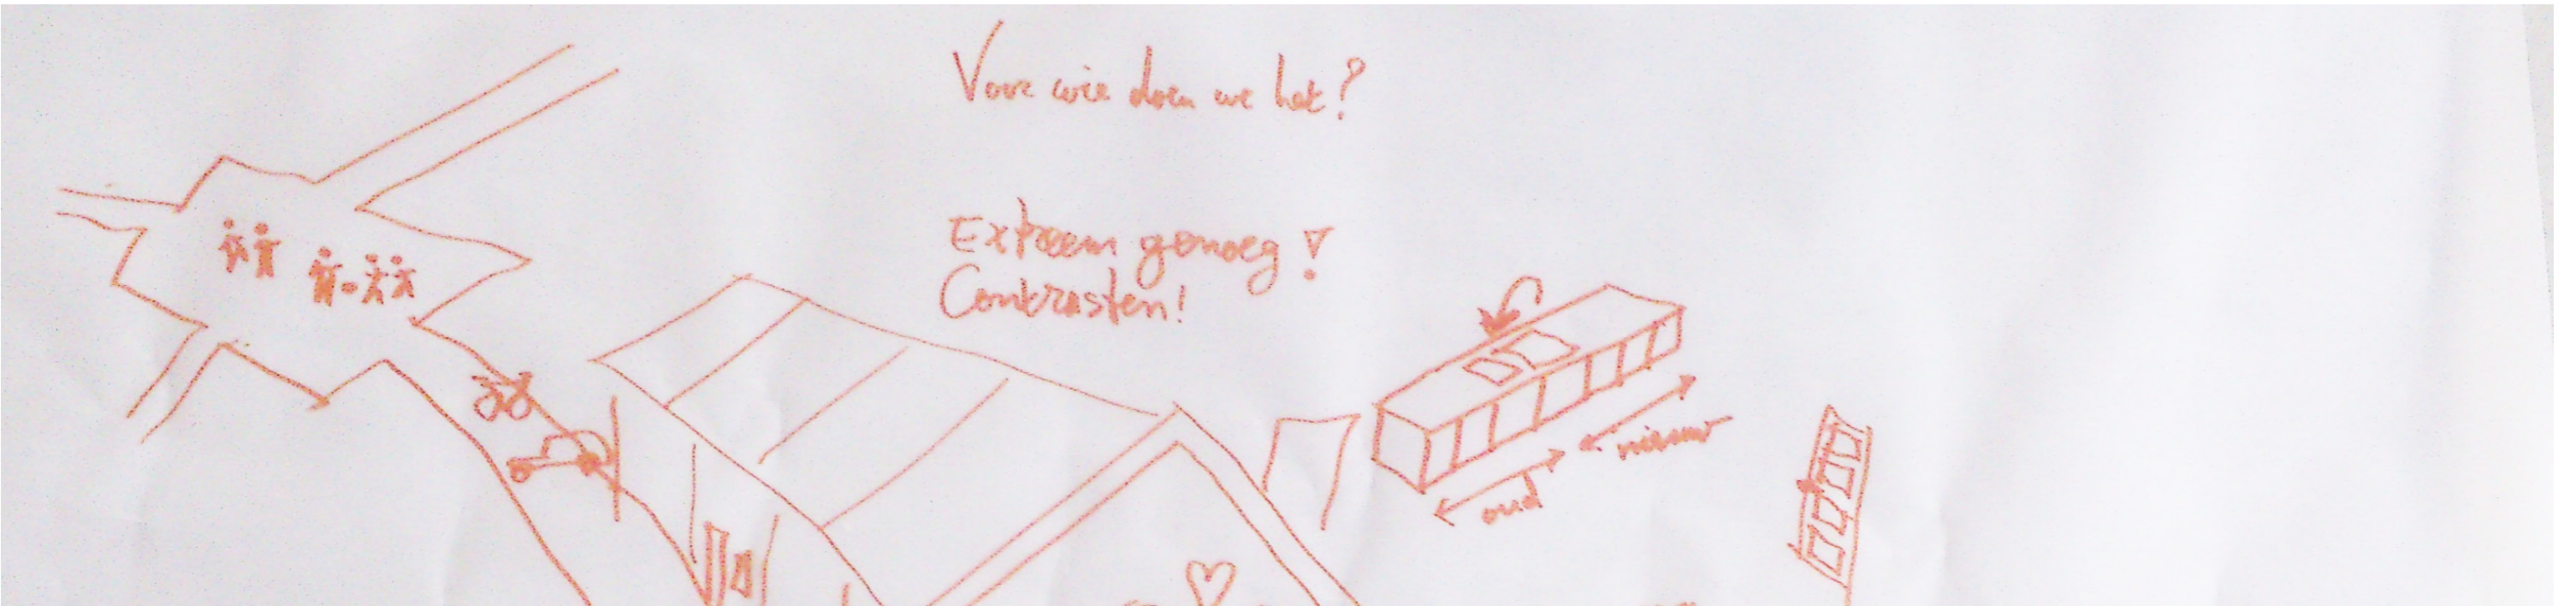 Voor wie doen we het?
Extreem genoeg!
Contrasten!
nieuw
oud